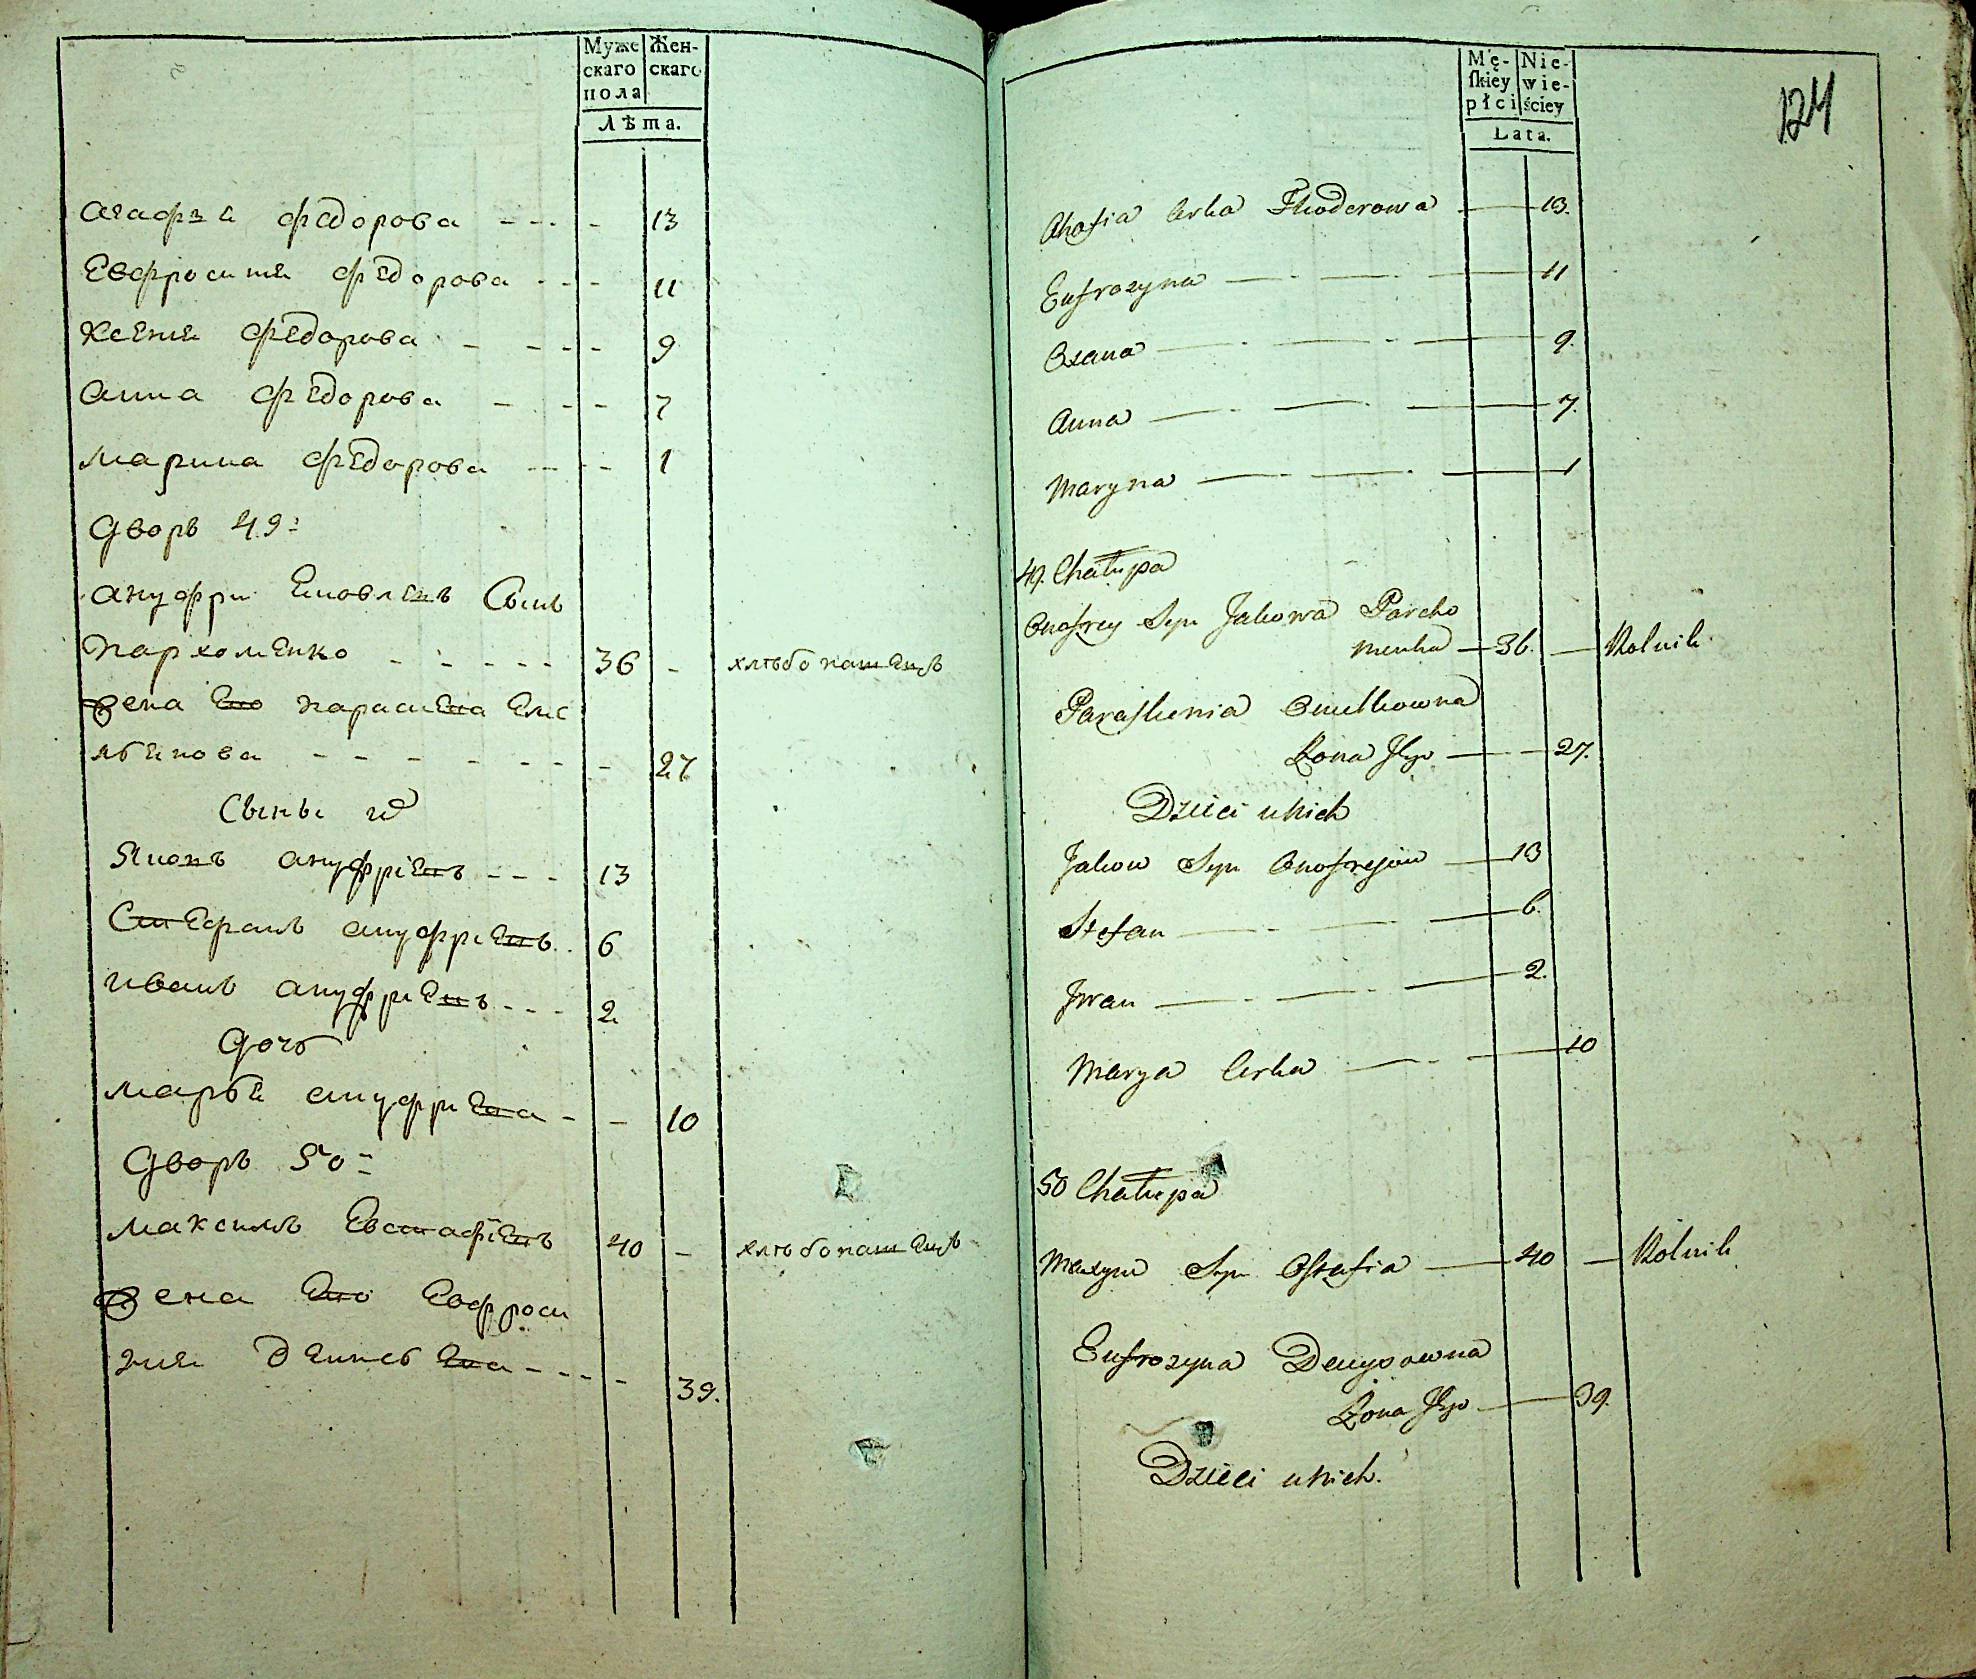 Муже Жен-
скаго скаго
пола
Лѣта.
агафия федорова - - - - 13
Евфросиния федорова - - - 11
Ксения федорова - - - - 9
анна федорова - - - 7
марина федорова - - - - 1
Дворъ 49:
ануфри Яковлевъ Сынъ
пархоменко - - - - - 36 - хлѣбопашецъ
жена Ево параскева Еме
льянова - - - - - - - 27
Сыны их
Яковъ ануфріевъ - - - 13
Стефанъ ануфриевъ. . 6
иванъ ануфриевъ - - - 2
Дочь
марья ануфриева - - 10
Дворъ 50:
максимъ Евстафіевъ 40 - хлѣбопашецъ
жена Ево Евфроси
ния денисьева - - - - 39.
Mę- Nie-
ſkiey wie-
płci ściey
Lata.
124
Ahafia Crka Fhoderowa 13.
Eufrozyna 11
Oxana 9.
Anna 7.
Maryna 1
49. Chałupa
Onofrey Syn Jakowa Parcho
menka 36. Rolnik
Paraſkewia Omelkowna
Żona Jego 27.
Dzieci u Nich
Jakow Syn Onofrejow 13
Stefan 6.
Jwan 2.
Marya Crka 10
50 Chałupa
Maxym Syn Oſtafia 40 Rolnik
Eufrozyna Denysowna
Żona Jego 39.
Dzieci u Nich.